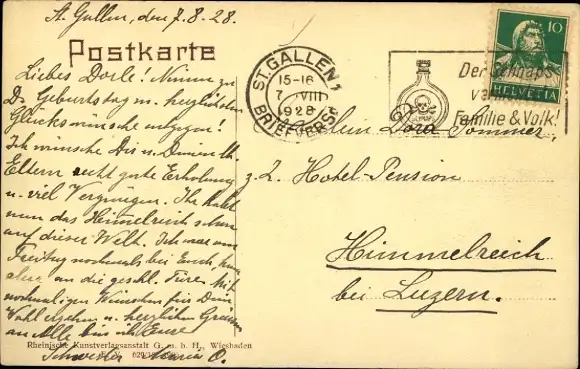 St. Gallen, den 7.8.28.
Postkarte
Liebes Dorle! Nimm zu
D. Geburtstag m. herzlichsten
Glückwünsche entgegen!
Ich wünsche Dir u. Deinen lb.
Eltern recht gute Erholung
u. viel Vergnügen. Ihr habt
nun das Himmelreich schon
auf dieser Welt. Ich war am
Freitag nochmals bei Euch, kam
aber an die geschl. Türe. Mit
nochmaligen Wünschen für Dein
Wohl ergehen u. herzlichen Grüssen
an Alle bin ich Eure
Schwester Maria O.
Rheinische Kunstverlagsanstalt G. m. b. H., Wiesbaden
ST. GALLEN 1
15-16
7. VIII
1928
BRIEFVERS.
Der Schnaps
Familie & Volk!
10
HELVETIA
Dora Sommer,
z. Z. Hotel-Pension
Himmelreich
bei Luzern.